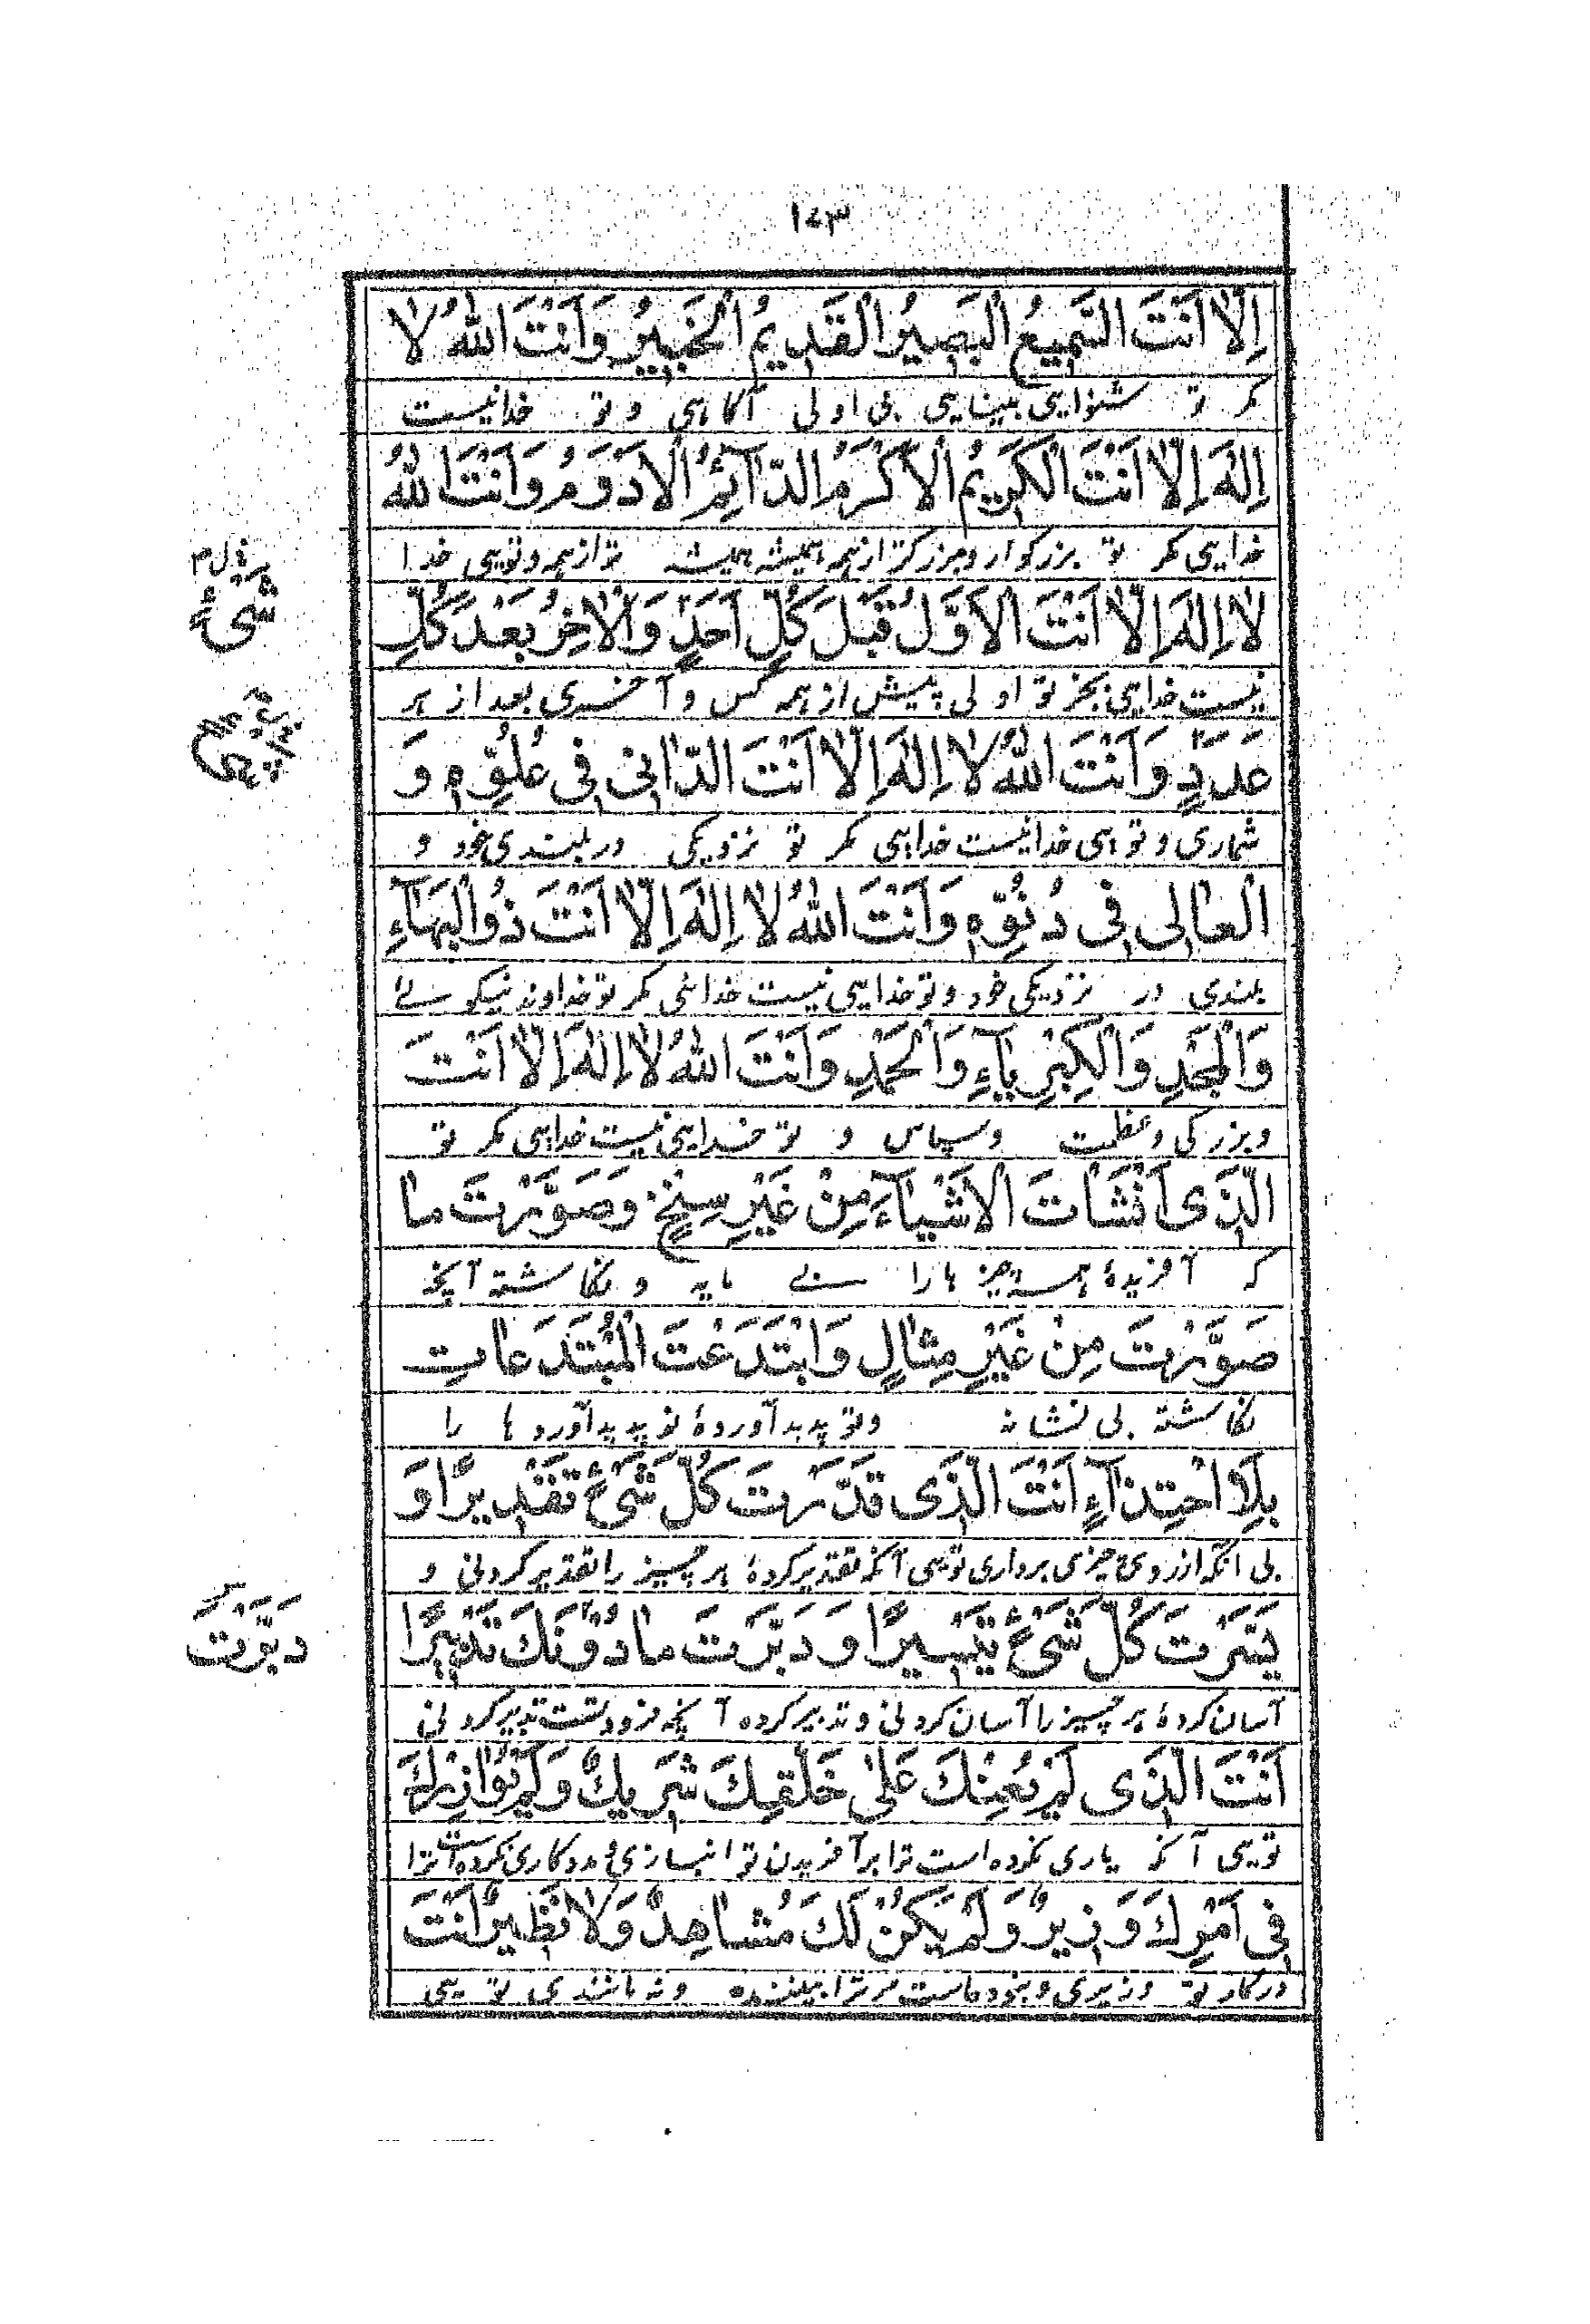 ۱۷۳
اِلّا اَنْتَ السَّمِيعُ الْبَصِيرُ الْقَدِيمُ الْخَبِيرُ وَاَنْتَ اللهُ لا
مگر تو شنوایی بینایی بی اولی آگاهی و تو خدا نیست
اِلٰهَ اِلّا اَنْتَ الْكَرِيمُ الْاَكْرَمُ الدّآئِمُ الْاَدْوَمُ وَاَنْتَ اللهُ
خدایی مگر تو بزرگوار و بزرگتر از همه همیشه همیشه تر از همه و تویی خدا
لا اِلٰهَ اِلّا اَنْتَ الْاَوَّلُ قَبْلَ كُلِّ اَحَدٍ وَالْاٰخِرُ بَعْدَ كُلِّ
شَیْءٍ
نیست خدایی بجز تو اولی پیش از همه کس و آخری بعد از هر
عَدَدٍ وَاَنْتَ اللهُ لا اِلٰهَ اِلّا اَنْتَ الدّانِى فِى عُلُوِّهِ وَ
شماری و تویی خدا نیست خدایی مگر تو نزدیکی در بلندی خود و
الْعالِى فِى دُنُوِّهِ وَاَنْتَ اللهُ لا اِلٰهَ اِلّا اَنْتَ ذُوالْبَهآءِ
بلندی در نزدیکی خود و تو خدایی نیست خدائی مگر تو خداوند نیکوئی
وَالْمَجْدِ وَالْكِبْرِيآءِ وَالْحَمْدِ وَاَنْتَ اللهُ لا اِلٰهَ اِلّا اَنْتَ
و بزرگی و عظمت و سپاس و تو خدایی نیست خدایی مگر تو
الَّذِى اَنْشَاْتَ الْاَشْيآءَ مِنْ غَيْرِ سِنْخٍ وَصَوَّرْتَ ما
که آفریدهٔ همه چیز ها را بی مایه و نگاشتهٔ آنچه
صَوَّرْتَ مِنْ غَيْرِ مِثالٍ وَابْتَدَعْتَ الْمُبْتَدَعاتِ
نگاشتهٔ بی نشانه و تو پدید آوردهٔ نو پدید آوردها را
بِلَا احْتِذآءٍ اَنْتَ الَّذِى قَدَّرْتَ كُلَّ شَىْءٍ تَقْدِيرًا وَ
بی آنکه از روی چیزی برداری تویی آنکه تقدیر کردهٔ هر چیز را تقدیر کردنی و
يَسَّرْتَ كُلَّ شَىْءٍ تَيْسِيرًا وَ دَبَّرْتَ ما دُوْنَكَ تَدْبِيرًا
دَبَّرْتَ
آسان کردهٔ هر چیز را آسان کردنی و تدبیر کرده آنچه فرود تست تدبیر کردنی
اَنْتَ الَّذِى لَمْ يُعِنْكَ عَلىٰ خَلْقِكَ شَرِيكٌ وَلَمْ يُوازِرْكَ
تویی آنکه یاری نکرده است ترا بر آفریدن تو انبازی و مددکاری نکرده است ترا
فِى اَمْرِكَ وَزِيرٌ وَلَمْ يَكُنْ لَكَ مُشاهِدٌ وَلا نَظِيرٌ اَنْتَ
در کار تو وزیری و نبوده است مر ترا بیننده و نه مانندی تویی